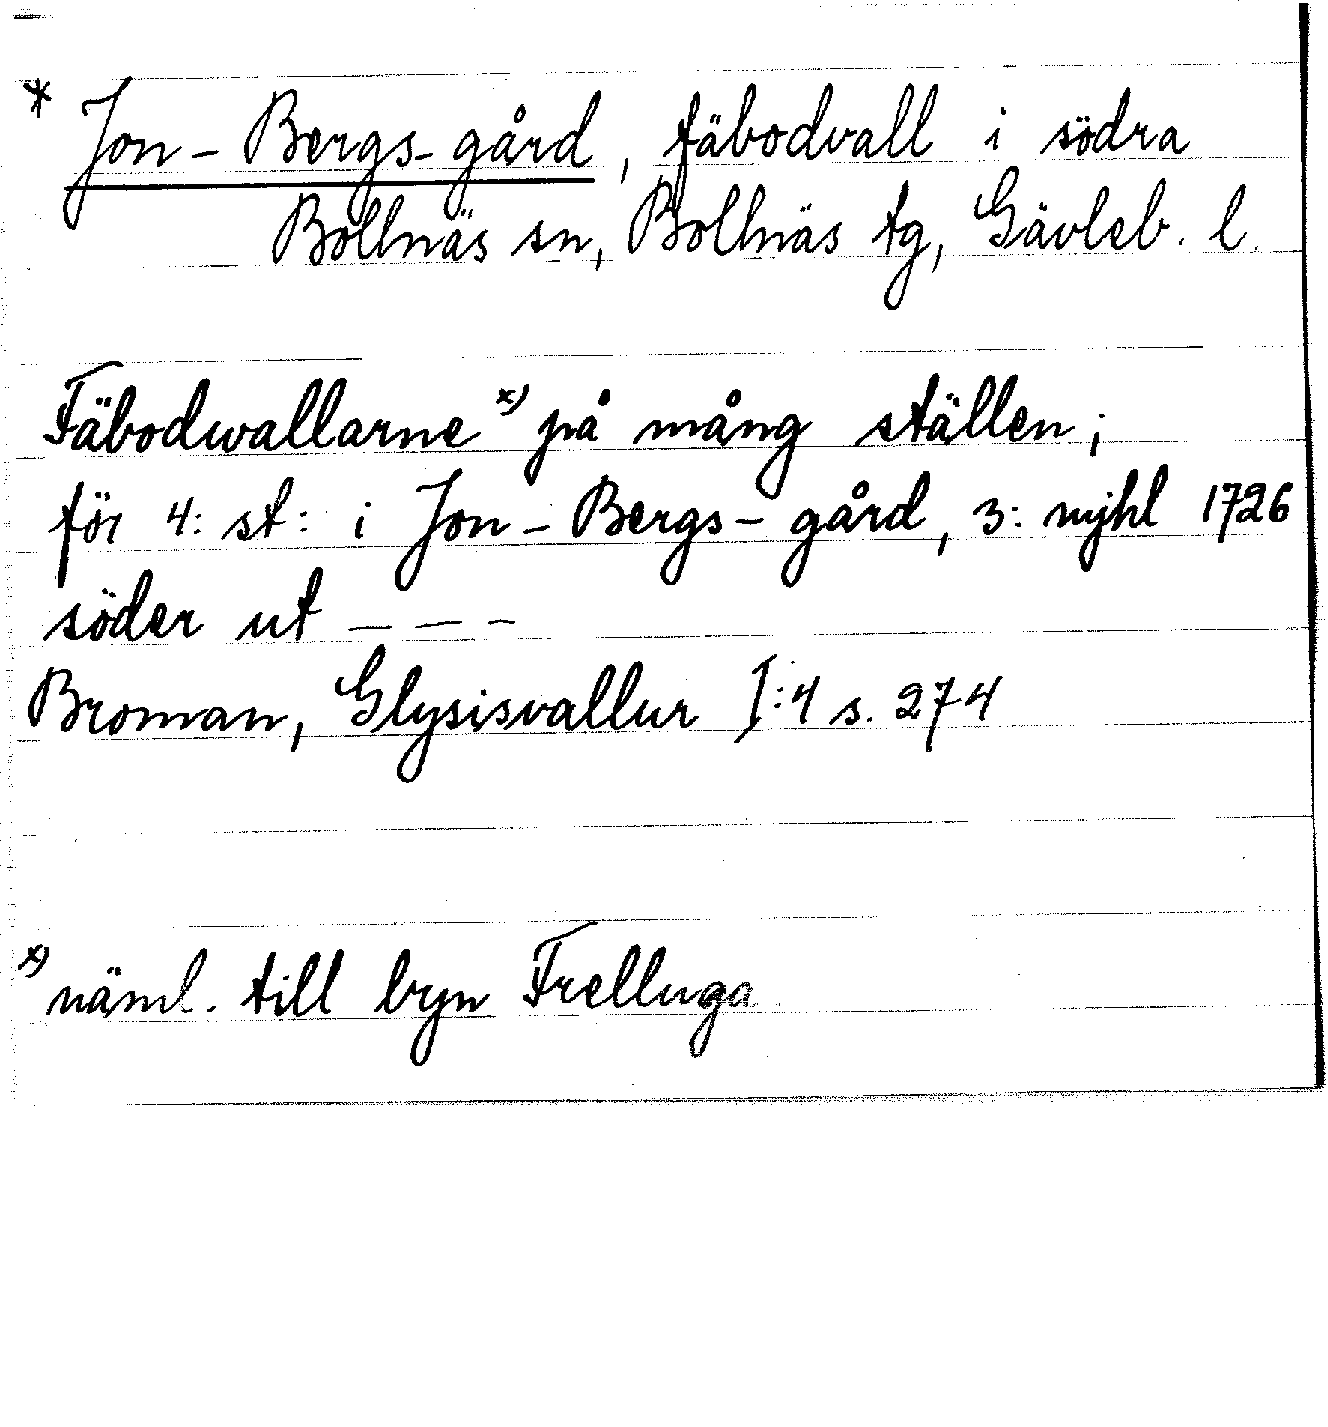 * Jon-Bergs-gård, fäbodvall i södra
Bollnäs sn, Bollnäs tg, Gävleb. l.
Fäbodwallarne x) på mång ställen;
för 4: st: i Jon-Bergs-gård, 3: mjhl 1726
söder ut - - -
Broman, Glysisvallur I:4 s. 274
x) näml. till byn Frelluga